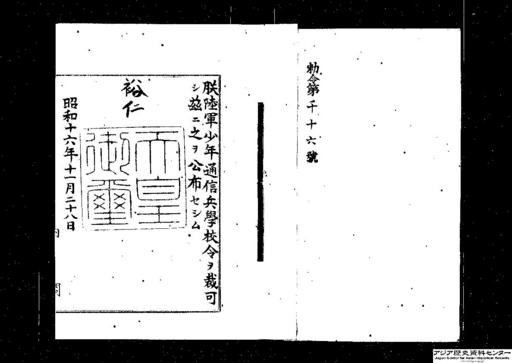 勅令第千十六號
朕陸軍少年通信兵學校令ヲ裁可
シ茲ニ之ヲ公布セシム
裕仁
天皇
御璽
昭和十六年十一月二十八日
内閣
アジア歴史資料センター
Japan Center for Asian Historical Records